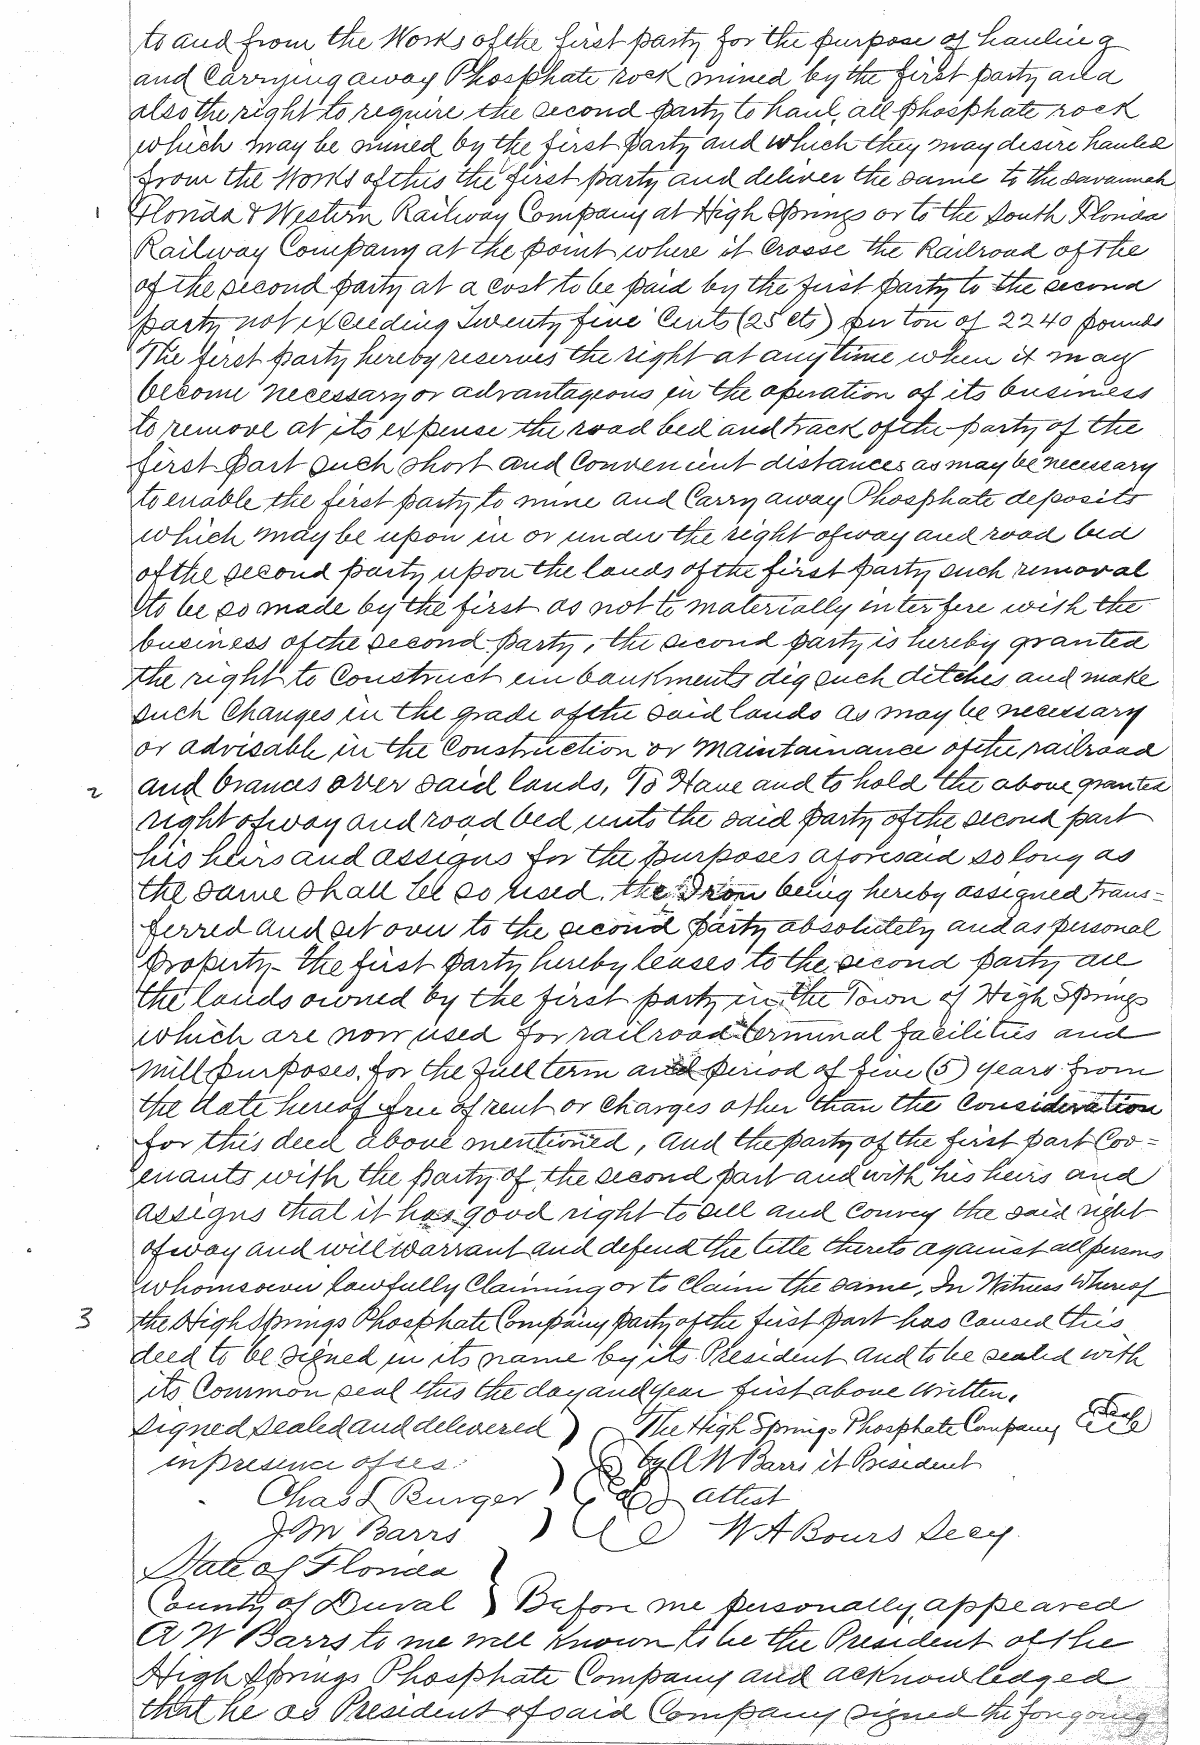 to and from the Works of the first party for the purpose of hauling
and Carrying away Phosphate rock mined by the first party and
also the right to require the second party to haul all phosphate rock
which may be mined by the first party and which they may desire hauled
from the Works of this the first party and deliver the same to the Savannah
1 Florida & Western Railway Company at High Springs or to the South Florida
Railway Company at the point where it crosse the Railroad of the
of the second party at a cost to be paid by the first party to the second
party not exceeding Twenty five Cents (25 cts) per ton of 2240 pounds
The first party hereby reserves the right at any time when it may
become necessary or advantageous in the operation of its business
to remove at its expense the road bed and track of the party of the
first part such short and convenient distances as may be necessary
to enable the first party to mine and Carry away Phosphate deposits
which may be upon in or under the right of way and road bed
of the second party upon the lands of the first party such removal
to be so made by the first as not to materially interfere with the
business of the second party, the second party is hereby granted
the right to Construct embankments dig such ditches and make
such Changes in the grade of the said lands as may be necessary
or advisable in the Construction or Maintainance of the railroad
2 and brances over said lands, To Have and to hold the above granted
right of way and road bed unto the said party of the second part
his heirs and assigns for the purposes aforesaid so long as
the same shall be so used. the Iron being hereby assigned trans=
ferred and set over to the second party absolutely and as personal
property - the first party hereby leases to the second party all
the lands owned by the first party in the Town of High Springs
which are now used for railroad terminal facilities and
mill purposes, for the full term and period of five (5) years from
the date hereof free of rent or charges other than the Consideration
for this deed above mentioned, And the party of the first part Cov=
enants with the party of the second part and with his heirs and
assigns that it has good right to sell and convey the said right
of way and will warrant and defend the title thereto against all persons
whomsoever lawfully Claiming or to Claim the same, In Witness Whereof
3 the High Springs Phosphate Company party of the first part has caused this
deed to be signed in its name by its President and to be sealed with
its Common seal this the day and year first above written.
Signed sealed and delivered ) The High Springs Phosphate Company (Seal)
in presence of us ) by A W Barrs it President
Chas L Burger ) attest
J M Barrs ) W A Bours Secy.
State of Florida }
County of Duval } Before me personally, appeared
A W Barrs to me well Known to be the President of the
High Springs Phosphate Company and acknowledged
that he as President of said Company signed the forgoing